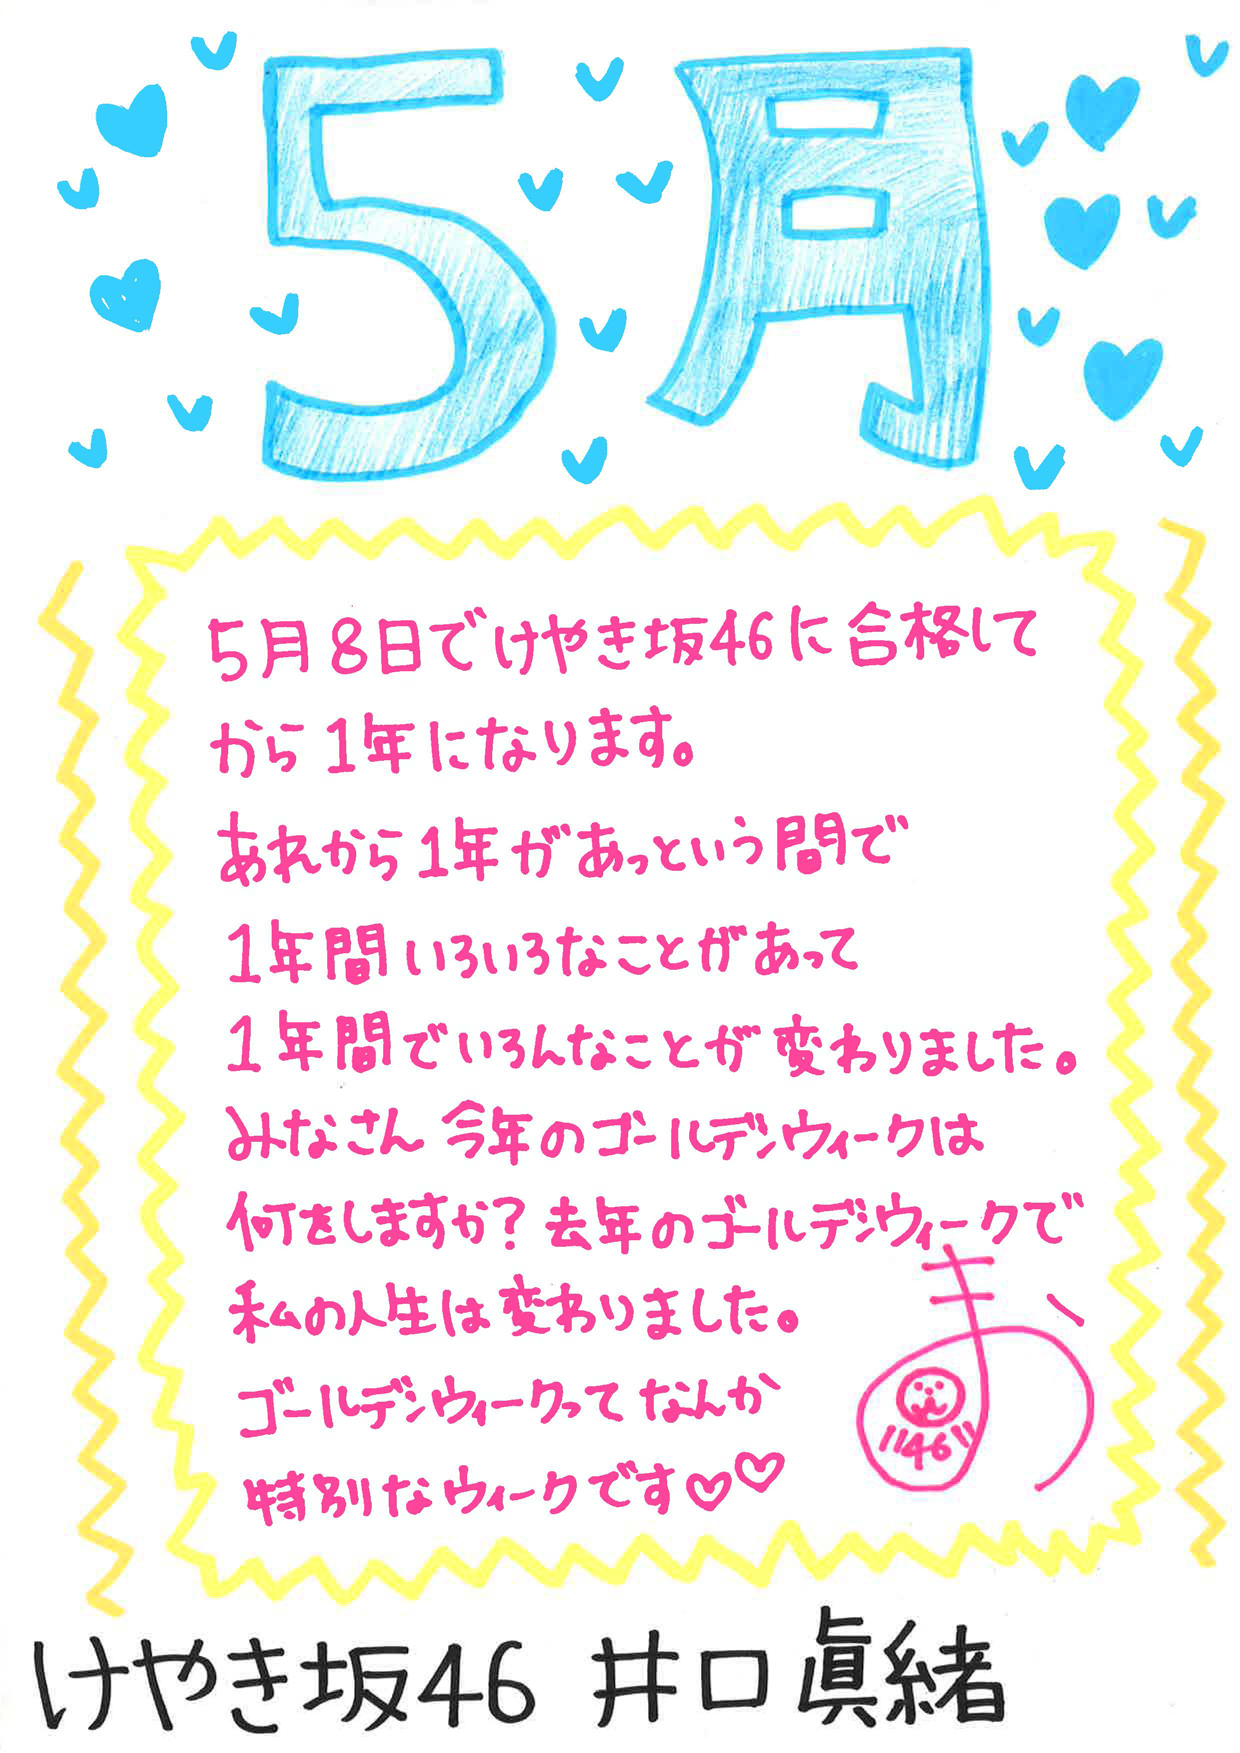 5月
5月8日でけやき坂46に合格して
から1年になります。
あれから1年があっという間で
1年間いろいろなことがあって
1年間でいろんなことが変わりました。
みなさん 今年のゴールデンウィークは
何をしますか?去年のゴールデンウィークで
私の人生は変わりました。
ゴールデンウィークってなんか
特別なウィークです♡♡
まお
"46"
けやき坂46 井口眞緒